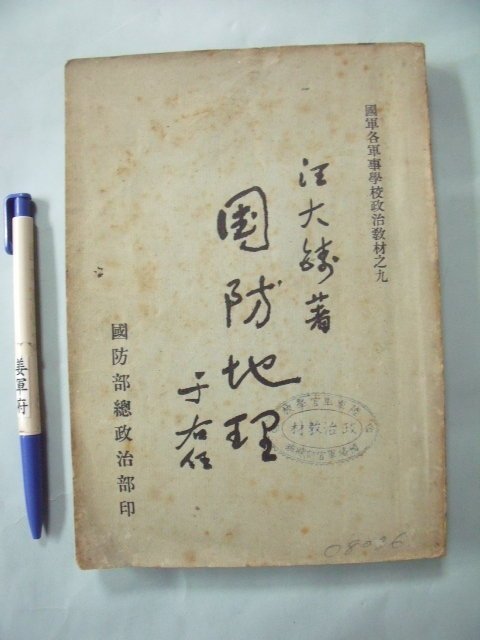 國軍各軍事學校政治教材之九
汪大鑄著
國防地理
于右任
國防部總政治部印
政治教材
08036
姜軍府